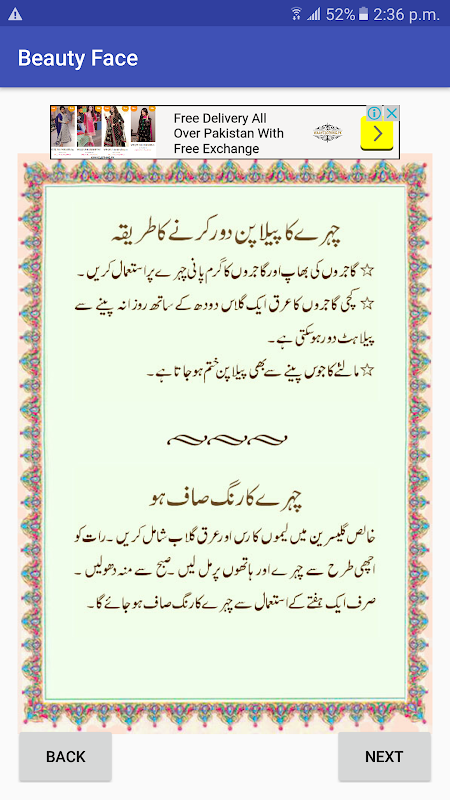 52% 2:36 p.m.
Beauty Face
Free Delivery All
Over Pakistan With
Free Exchange
چہرے کا پیلا پن دور کرنے کا طریقہ
☆ گاجروں کی بھاپ اور گاجروں کا گرم پانی چہرے پر استعمال کریں۔
☆ کچی گاجروں کا عرق ایک گلاس دودھ کے ساتھ روزانہ پینے سے
پیلاہٹ دور ہو سکتی ہے۔
☆ مالٹے کا جوس پینے سے بھی پیلا پن ختم ہو جاتا ہے۔
چہرے کا رنگ صاف ہو
خالص گلیسرین میں لیموں کا رس اور عرق گلاب شامل کریں۔ رات کو
اچھی طرح سے چہرے اور ہاتھوں پر مل لیں۔ صبح سے منہ دھولیں۔
صرف ایک ہفتے کے استعمال سے چہرے کا رنگ صاف ہو جائے گا۔
BACK NEXT